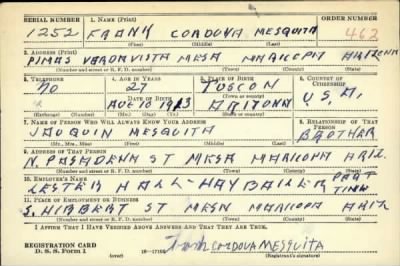 SERIAL NUMBER 1. NAME (Print) ORDER NUMBER
1252 FRANK CORDOVA MESQUITA 462
(First) (Middle) (Last)
2. ADDRESS (Print)
PIMAS VERDAVISTA MESA MARICOPA ARIZONA
(Number and street or R. F. D. number) (Town) (County) (State)
3. TELEPHONE 4. AGE IN YEARS 5. PLACE OF BIRTH 6. COUNTRY OF CITIZENSHIP
NO 27 TUSCON
DATE OF BIRTH (Town or county) U.S.A.
AUG 10 1913 ARIZONA
(Exchange) (Number) (Mo.) (Day) (Yr.) (State or country)
7. NAME OF PERSON WHO WILL ALWAYS KNOW YOUR ADDRESS 8. RELATIONSHIP OF THAT PERSON
JAUQUIN MESQUITA BROTHER
(Mr., Mrs., Miss) (First) (Middle) (Last)
9. ADDRESS OF THAT PERSON
N. PASADENA ST MESA MARICOPA ARIZ.
(Number and street or R. F. D. number) (Town) (County) (State)
10. EMPLOYER'S NAME
LESTER HALL - HAY BAILER PART TIME
11. PLACE OF EMPLOYMENT OR BUSINESS
S. HIBBERT ST MESA MARICOPA ARIZ
(Number and street or R. F. D. number) (Town) (County) (State)
I AFFIRM THAT I HAVE VERIFIED ABOVE ANSWERS AND THAT THEY ARE TRUE.
REGISTRATION CARD
D. S. S. Form 1 (over) 16—17105 Frank CORDOVA MESQUITA
(Registrant's signature)